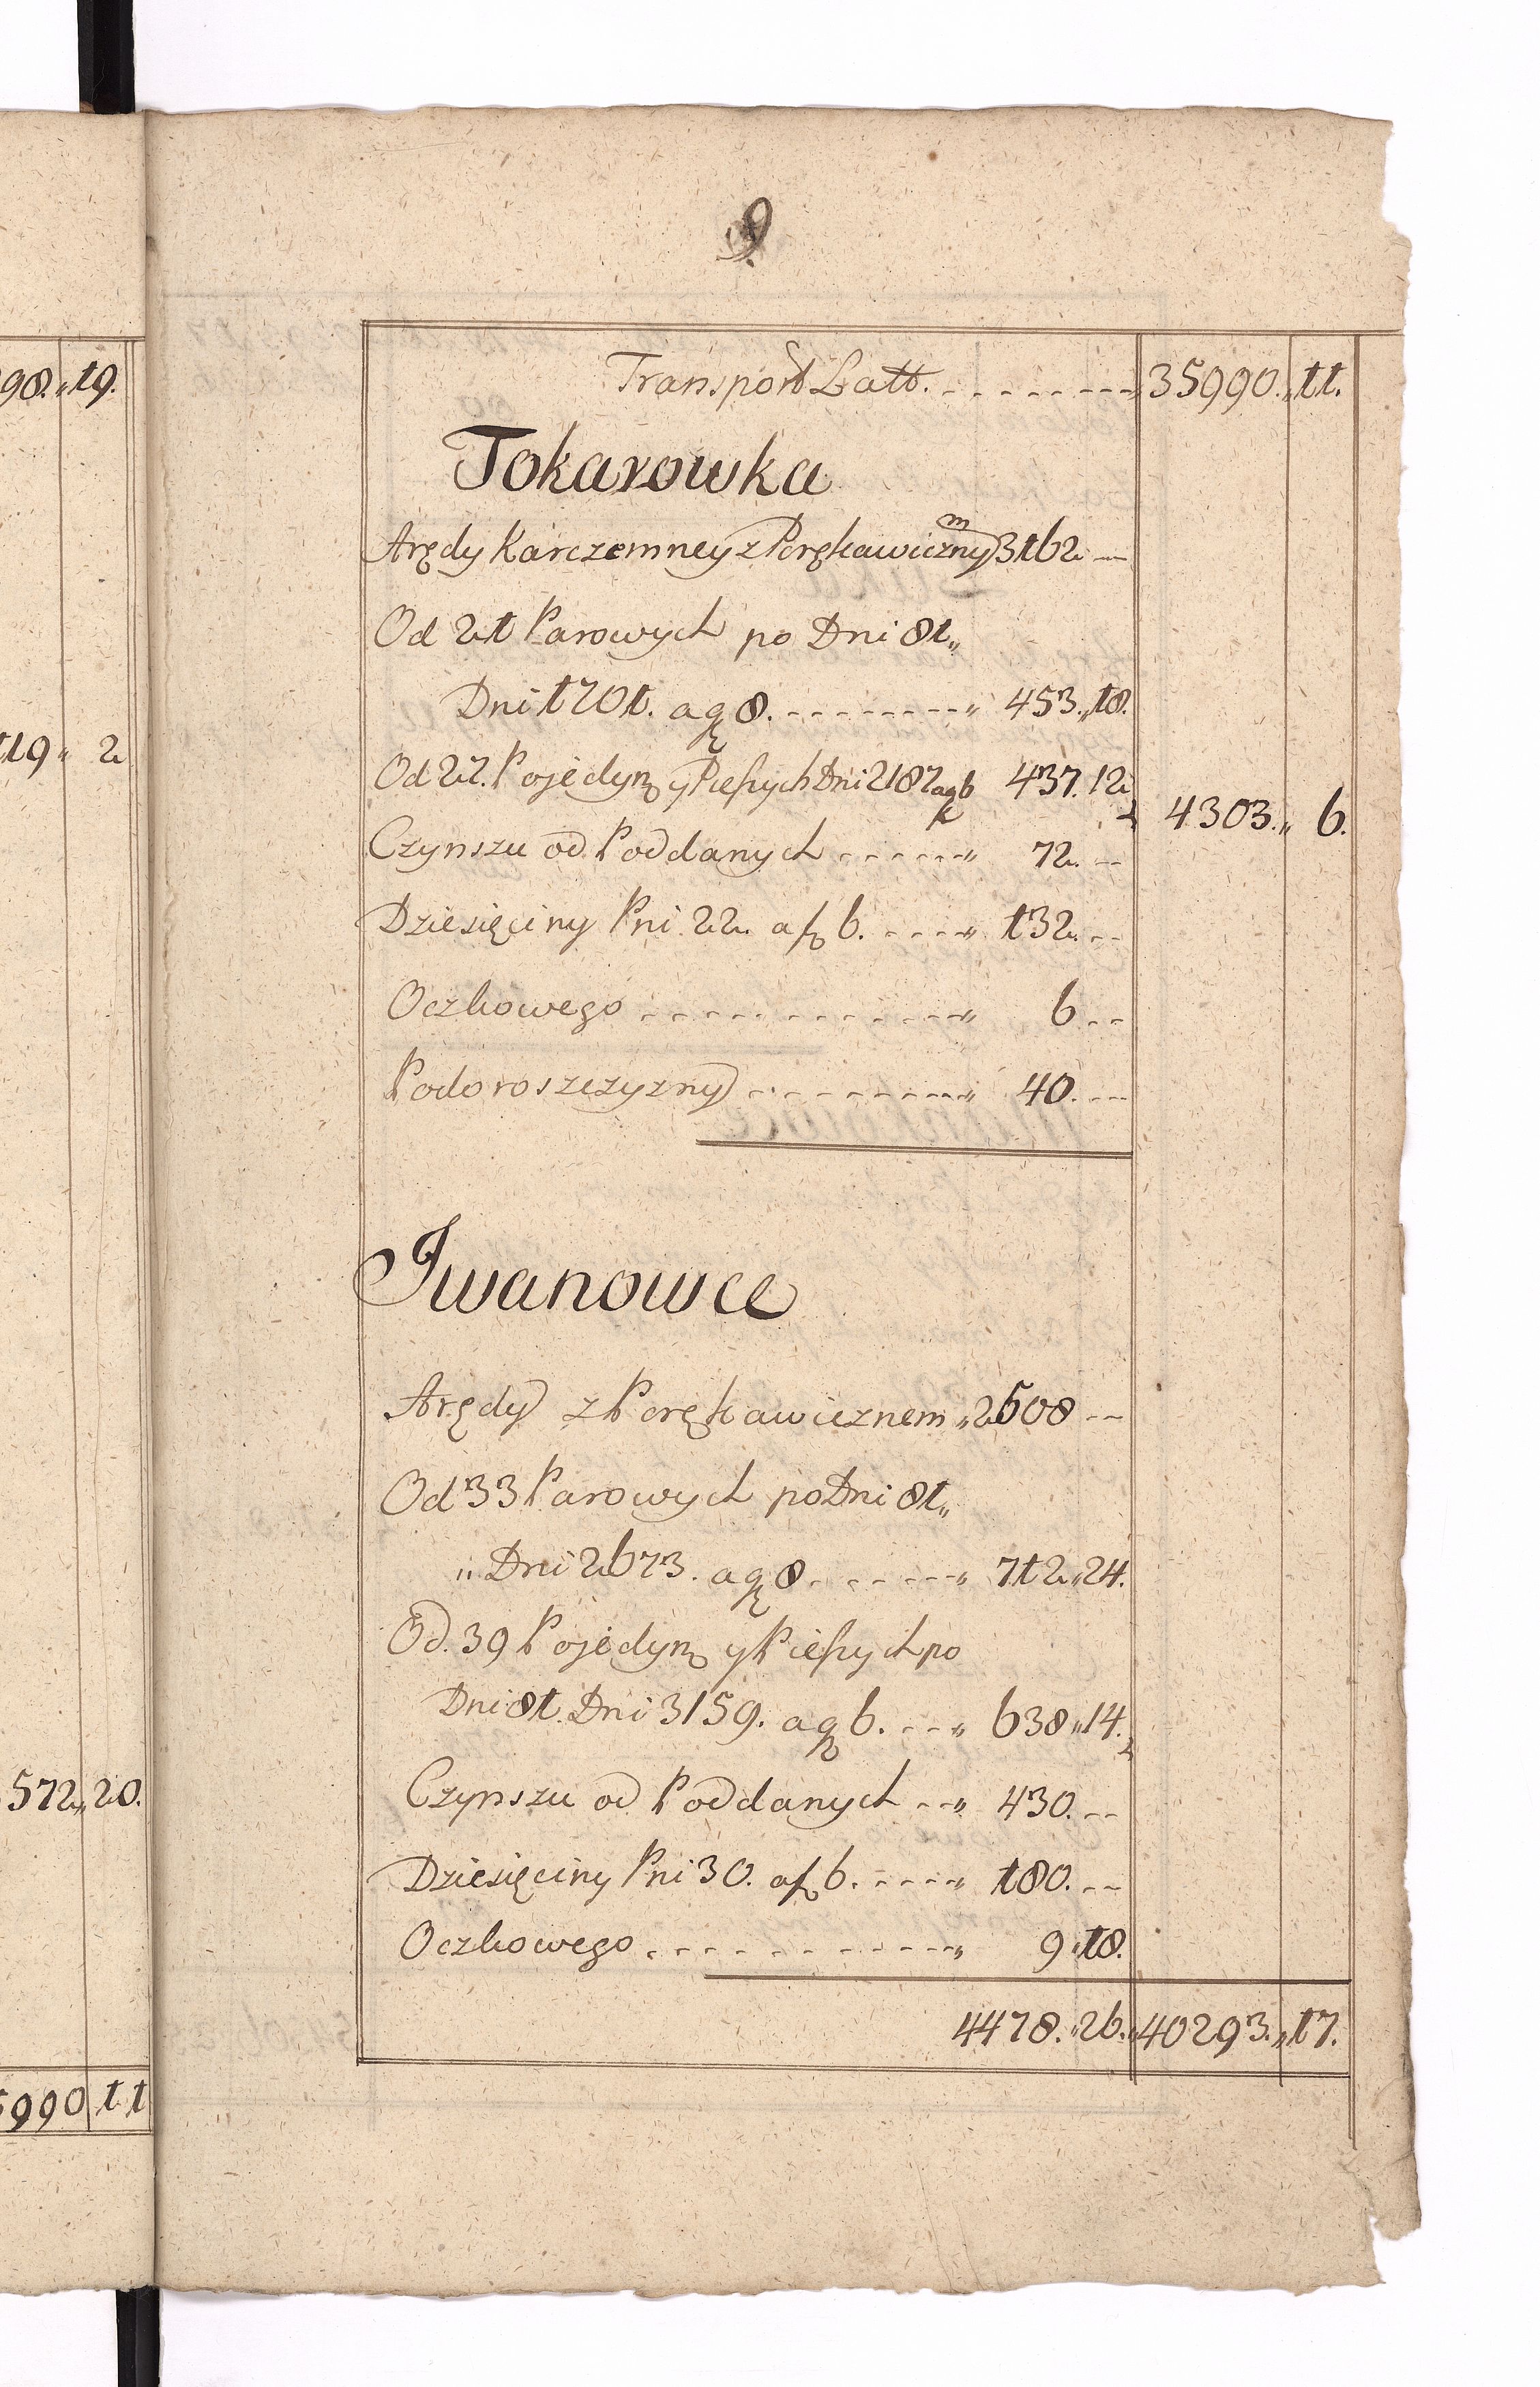 98.,, 19.
119,, 2
572,, 20.
5990 11
9
Transport Latt. - - - - - - - - - ,, 35990.,, 11.
Tokarowka
Arędy Karczemney z Poręhawicznym 3162 --
Od 21 Parowych po Dni 81,,
Dni 1701. a gę 8. - - - - - - - - ,, 453.,, 18.
Od 27. Pojedyn: y Pieszych Dni 2187 a gę 6 437. 12
4303.,, 6.
Czynszu od Poddanych - - - - - - ,, 72. --
Dziesięciny Pni 22. a f 6. - - - - ,, 132. --
Oczkowego - - - - - - - - - - - - ,, 6 --
Podoroszczyzny - - - - - - - - - ,, 40. --
Jwanowce
Arędy z Poręhawicznem ,, 2508 --
Od 33 Parowych po Dni 81,,
,, Dni 2673. a gę 8. - - - - - - ,, 712,, 24.
Od. 39 Pojedyn: y Pieszych po
Dni 81. Dni 3159. a gę 6. - - - ,, 638,, 14.
Czynszu od Poddanych - - ,, 430. --
Dziesięciny Pni 30. a f 6. - - - - ,, 180. --
Oczkowego. - - - - - - - - - - - ,, 9,, 18.
4478.,, 26.,, 40293.,, 17.